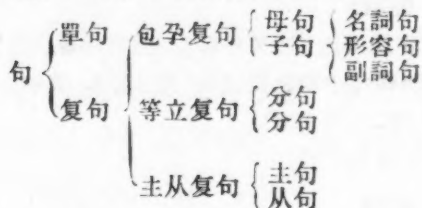 句
單句
复句
包孕复句
母句
子句
名詞句
形容句
副詞句
等立复句
分句
分句
主从复句
主句
从句